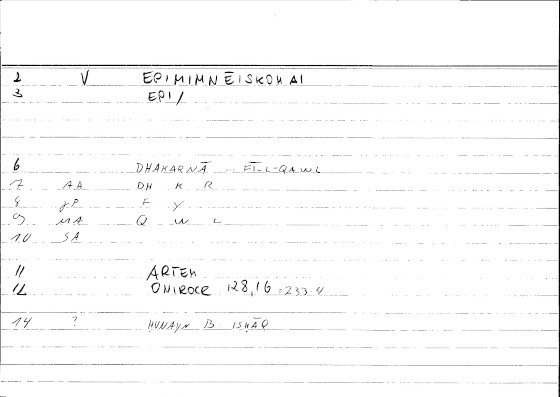 2 V EPIMIMNĒISKOMAI
3 EPI/
6 DHAKARNĀ FĪ-L-QAWL
7 AA DH K R
8 gP F Y
9 MA Q W L
10 SA
11 ARTEM
12 ONIROCR 128,16 = 233.4
14 ? HUNAYN B ISHĀQ